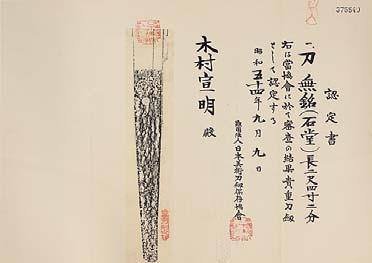 375540
認定書
一、刀 無銘(石堂)長二尺四寸二分
右は當協會に於て審査の結果貴重刀剣
として認定する
昭和五十四年九月九日
財団法人日本美術刀剣保存協會
木村宣明殿